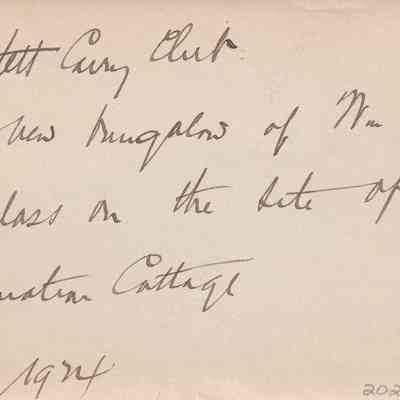 lett Carry Club
New bungalow of Wm
lass on the site of
nation Cottage
1924
202